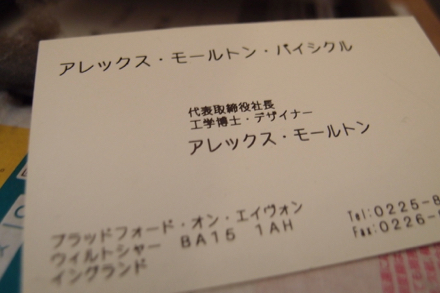 アレックス・モールトン・バイシクル
代表取締役社長
工学博士・デザイナー
アレックス・モールトン
ブラッドフォード・オン・エイヴォン
ウィルトシャー BA15 1AH
イングランド
Tel:0225-8
Fax:0226-